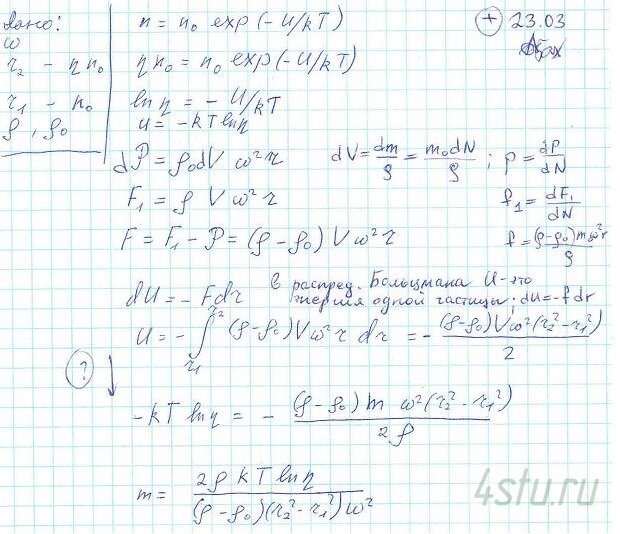 Дано:
ω
r₂ - ηn₀
r₁ - n₀
ρ, ρ₀
n = n₀ exp(-U/kT)
ηn₀ = n₀ exp(-U/kT)
ln η = -U/kT
u = -kT ln η
+ 23.03
dP = ρ₀dV ω²r dV = dm/ρ = m₀dN/ρ ; p = dP/dN
F₁ = ρ V ω² r f₁ = dF₁/dN
F = F₁ - P = (ρ - ρ₀) V ω² r f = (ρ-ρ₀)m₀ω²r/ρ
dU = - Fdr в распред. Больцмана U - это
энергия одной частицы; dU = -f dr
U = - ∫_{r₁}^{r₂} (ρ-ρ₀)Vω² r dr = - (ρ-ρ₀)Vω²(r₂²-r₁²)/2
?
-kT ln η = - (ρ-ρ₀) m ω²(r₂²-r₁²)/2ρ
m = 2ρ kT ln η/(ρ-ρ₀)(r₂²-r₁²)ω²
4stu.ru